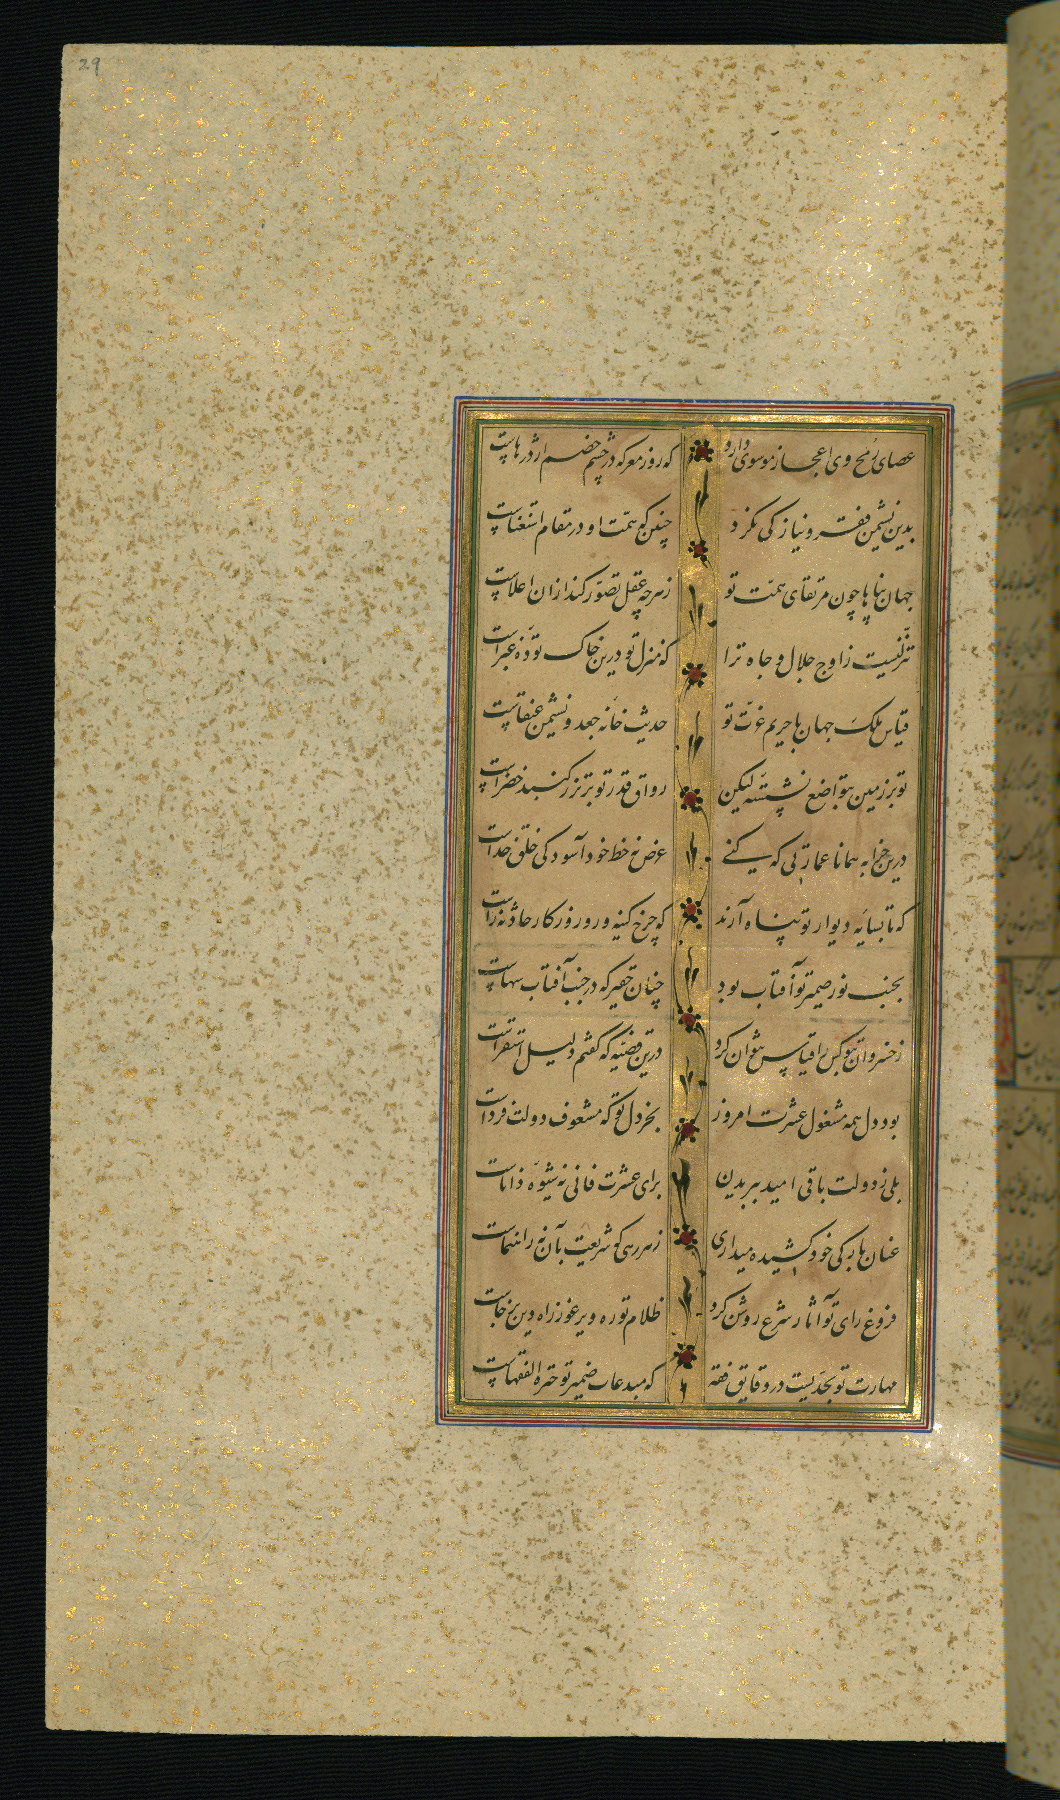 29
عصای رمح وی اعجاز موسوی دارد که روز معرکه در چشم خصم اژدرهاست
بدین نشیمن فقر و نیاز کی نگرد چنین که همت او در مقام استغناست
جهان پناها چون مرتقای همت تو ز هر چه عقل تصور کند از آن اعلاست
تنزلیست ز اوج جلال و جاه ترا که منزل تو درین خاک توده غبراست
قیاس ملک جهان با حریم عزت تو حدیث خانه جغد و نشیمن عنقاست
تو بر زمین بتواضع نشسته لیکن رواق قدر تو برتر ز گنبد خضراست
درین خرابه همانا عمارتی که کنی غرض نه حظ خود آسودگی خلق خداست
که تا بسایه دیوار تو پناه آرند که چرخ کینه ور و روزگار حادثه زاست
بجنب نور ضمیر تو آفتاب بود چنان حقیر که در جنب آفتاب سهاست
ز خسروان بتو کس را قیاس نتوان کرد درین قضیه که گفتم دلیل استقراست
بود دل همه مشغول عشرت امروز بجز دل تو که مشعوف دولت فرداست
بلی ز دولت باقی امید ببریدن برای عشرت فانی نه شیوه داناست
عنان بارگی خود کشیده میداری ز هر رهی که شریعت بآن نه راهنماست
فروغ رای تو آثار شرع روشن کرد ظلام توره و یرغو ز راه دین برخاست
مهارت تو بحدیست در دقایق فقه که مبدعات ضمیر تو حیرة الفقهاست